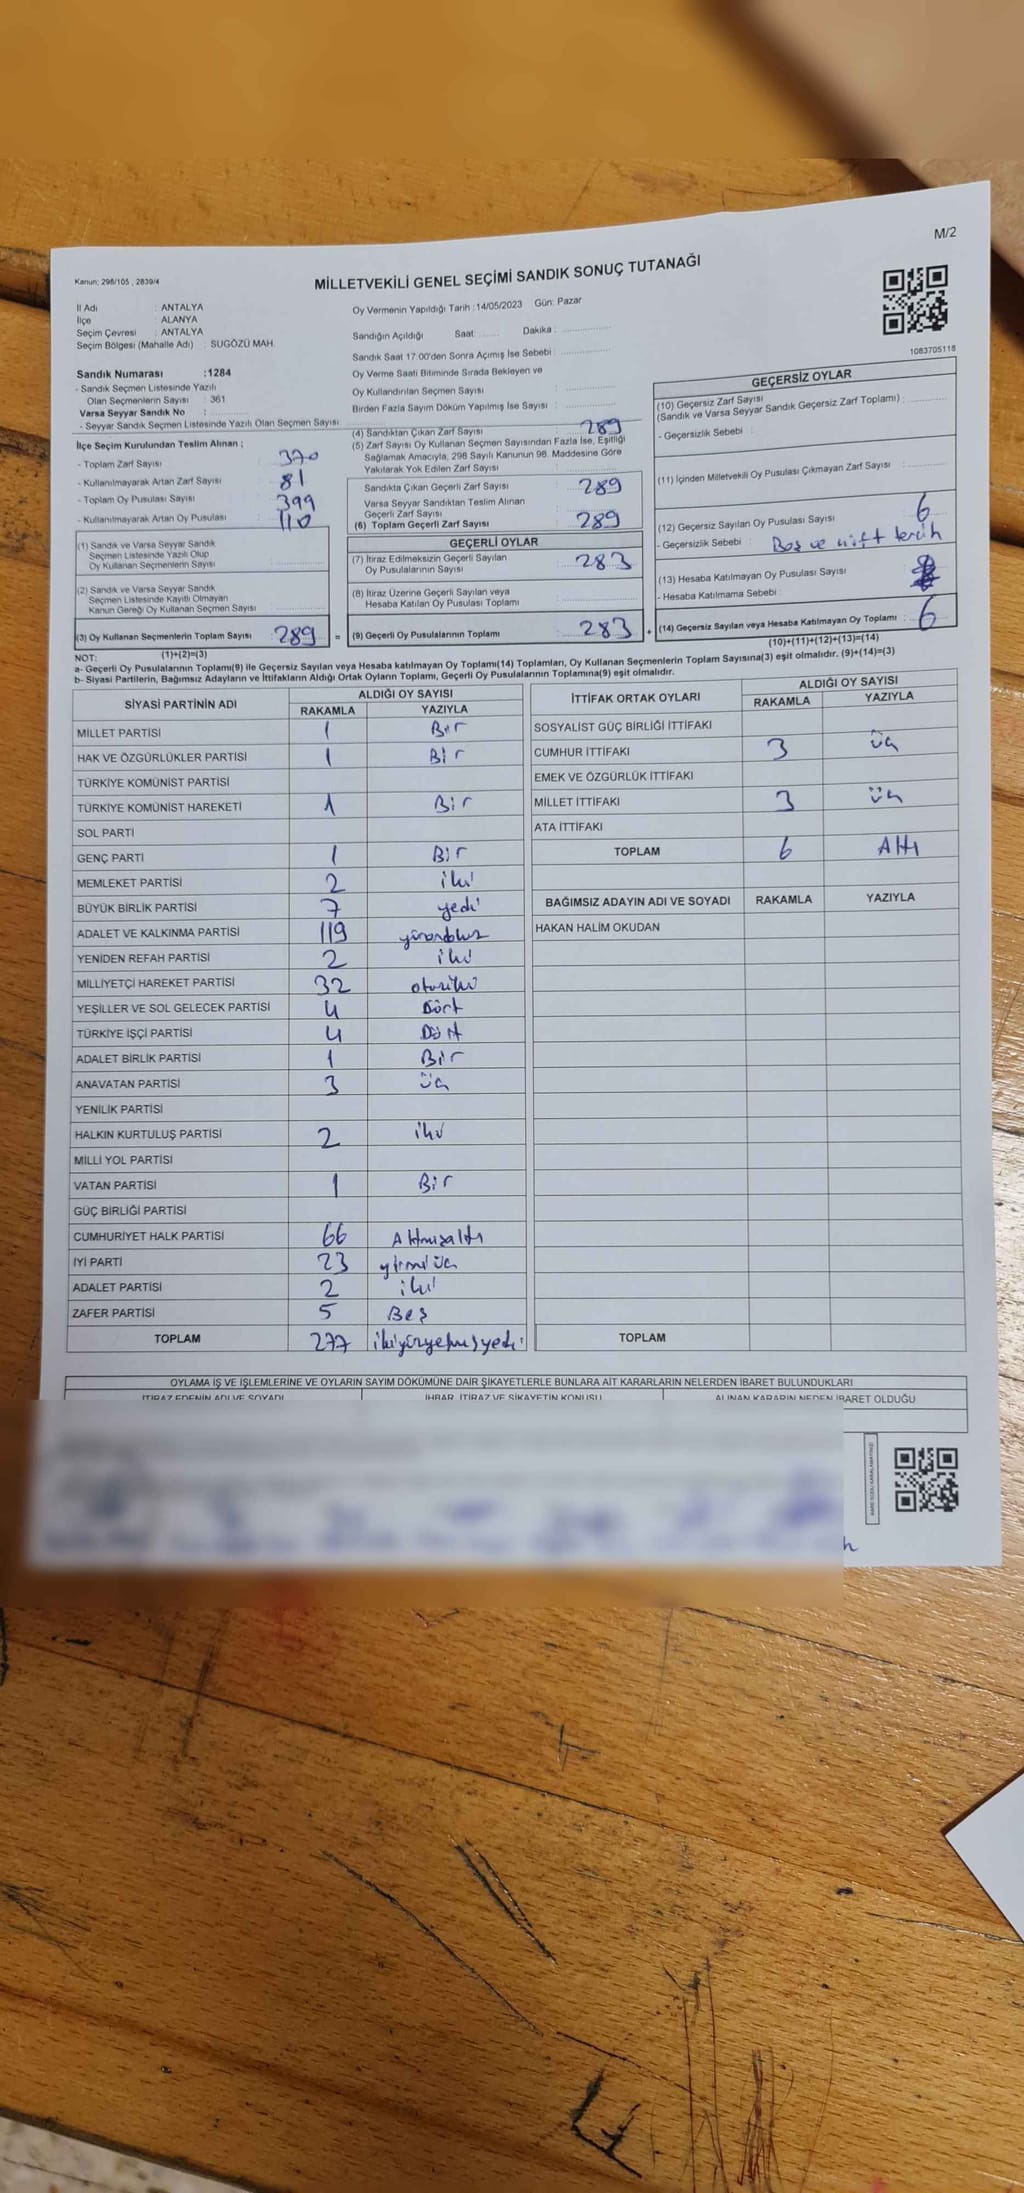 M/2
Kanun; 298/105 , 2839/4
MİLLETVEKİLİ GENEL SEÇİMİ SANDIK SONUÇ TUTANAĞI
İl Adı : ANTALYA
İlçe : ALANYA
Seçim Çevresi : ANTALYA
Seçim Bölgesi (Mahalle Adı) : SUGÖZÜ MAH.
Sandık Numarası :1284
- Sandık Seçmen Listesinde Yazılı
Olan Seçmenlerin Sayısı : 361
Varsa Seyyar Sandık No :
- Seyyar Sandık Seçmen Listesinde Yazılı Olan Seçmen Sayısı :
İlçe Seçim Kurulundan Teslim Alınan ;
- Toplam Zarf Sayısı : 370
- Kullanılmayarak Artan Zarf Sayısı : 81
- Toplam Oy Pusulası Sayısı : 399
- Kullanılmayarak Artan Oy Pusulası : 110
(1) Sandık ve Varsa Seyyar Sandık
Seçmen Listesinde Yazılı Olup
Oy Kullanan Seçmenlerin Sayısı :
(2) Sandık ve Varsa Seyyar Sandık
Seçmen Listesinde Kayıtlı Olmayan
Kanun Gereği Oy Kullanan Seçmen Sayısı :
(3) Oy Kullanan Seçmenlerin Toplam Sayısı : 289 =
(1)+(2)=(3)
Oy Vermenin Yapıldığı Tarih :14/05/2023 Gün: Pazar
Sandığın Açıldığı Saat: Dakika :
Sandık Saat 17:00'den Sonra Açımış İse Sebebi :
Oy Verme Saati Bitiminde Sırada Bekleyen ve
Oy Kullandırılan Seçmen Sayısı :
Birden Fazla Sayım Döküm Yapılmış İse Sayısı :
(4) Sandıktan Çıkan Zarf Sayısı : 289
(5) Zarf Sayısı Oy Kullanan Seçmen Sayısından Fazla İse, Eşitliği
Sağlamak Amacıyla, 298 Sayılı Kanunun 98. Maddesine Göre
Yakılarak Yok Edilen Zarf Sayısı :
Sandıkta Çıkan Geçerli Zarf Sayısı : 289
Varsa Seyyar Sandıktan Teslim Alınan
Geçerli Zarf Sayısı :
(6) Toplam Geçerli Zarf Sayısı : 289
GEÇERLİ OYLAR
(7) İtiraz Edilmeksizin Geçerli Sayılan
Oy Pusulalarının Sayısı : 283
(8) İtiraz Üzerine Geçerli Sayılan veya
Hesaba Katılan Oy Pusulası Toplamı :
(9) Geçerli Oy Pusulalarının Toplamı : 283 +
1083705118
GEÇERSİZ OYLAR
(10) Geçersiz Zarf Sayısı
(Sandık ve Varsa Seyyar Sandık Geçersiz Zarf Toplamı) :
- Geçersizlik Sebebi :
(11) İçinden Milletvekili Oy Pusulası Çıkmayan Zarf Sayısı :
(12) Geçersiz Sayılan Oy Pusulası Sayısı : 6
- Geçersizlik Sebebi : Boş ve çift tercih
(13) Hesaba Katılmayan Oy Pusulası Sayısı :
- Hesaba Katılmama Sebebi :
(14) Geçersiz Sayılan veya Hesaba Katılmayan Oy Toplamı : 6
(10)+(11)+(12)+(13)=(14)
NOT:
a- Geçerli Oy Pusulalarının Toplamı(9) ile Geçersiz Sayılan veya Hesaba katılmayan Oy Toplamı(14) Toplamları, Oy Kullanan Seçmenlerin Toplam Sayısına(3) eşit olmalıdır. (9)+(14)=(3)
b- Siyasi Partilerin, Bağımsız Adayların ve İttifakların Aldığı Ortak Oyların Toplamı, Geçerli Oy Pusulalarının Toplamına(9) eşit olmalıdır.
SİYASİ PARTİNİN ADI ALDIĞI OY SAYISI
RAKAMLA YAZIYLA
MİLLET PARTİSİ 1 Bir
HAK VE ÖZGÜRLÜKLER PARTİSİ 1 Bir
TÜRKİYE KOMÜNİST PARTİSİ
TÜRKİYE KOMÜNİST HAREKETİ 1 Bir
SOL PARTİ
GENÇ PARTİ 1 Bir
MEMLEKET PARTİSİ 2 iki
BÜYÜK BİRLİK PARTİSİ 7 yedi
ADALET VE KALKINMA PARTİSİ 119 yüzondokuz
YENİDEN REFAH PARTİSİ 2 iki
MİLLİYETÇİ HAREKET PARTİSİ 32 otuziki
YEŞİLLER VE SOL GELECEK PARTİSİ 4 Dört
TÜRKİYE İŞÇİ PARTİSİ 4 Dört
ADALET BİRLİK PARTİSİ 1 Bir
ANAVATAN PARTİSİ 3 üç
YENİLİK PARTİSİ
HALKIN KURTULUŞ PARTİSİ 2 iki
MİLLİ YOL PARTİSİ
VATAN PARTİSİ 1 Bir
GÜÇ BİRLİĞİ PARTİSİ
CUMHURİYET HALK PARTİSİ 66 Altmışaltı
İYİ PARTİ 23 yirmiüç
ADALET PARTİSİ 2 iki
ZAFER PARTİSİ 5 Beş
TOPLAM 277 ikiyüzyetmişyedi
İTTİFAK ORTAK OYLARI ALDIĞI OY SAYISI
RAKAMLA YAZIYLA
SOSYALİST GÜÇ BİRLİĞİ İTTİFAKI
CUMHUR İTTİFAKI 3 üç
EMEK VE ÖZGÜRLÜK İTTİFAKI
MİLLET İTTİFAKI 3 üç
ATA İTTİFAKI
TOPLAM 6 Altı
BAĞIMSIZ ADAYIN ADI VE SOYADI RAKAMLA YAZIYLA
HAKAN HALİM OKUDAN
TOPLAM
OYLAMA İŞ VE İŞLEMLERİNE VE OYLARIN SAYIM DÖKÜMÜNE DAİR ŞİKAYETLERLE BUNLARA AİT KARARLARIN NELERDEN İBARET BULUNDUKLARI
İTİRAZ EDENİN ADI VE SOYADI İHBAR, İTİRAZ VE ŞİKAYETİN KONUSU ALINAN KARARIN NEDEN İBARET OLDUĞU